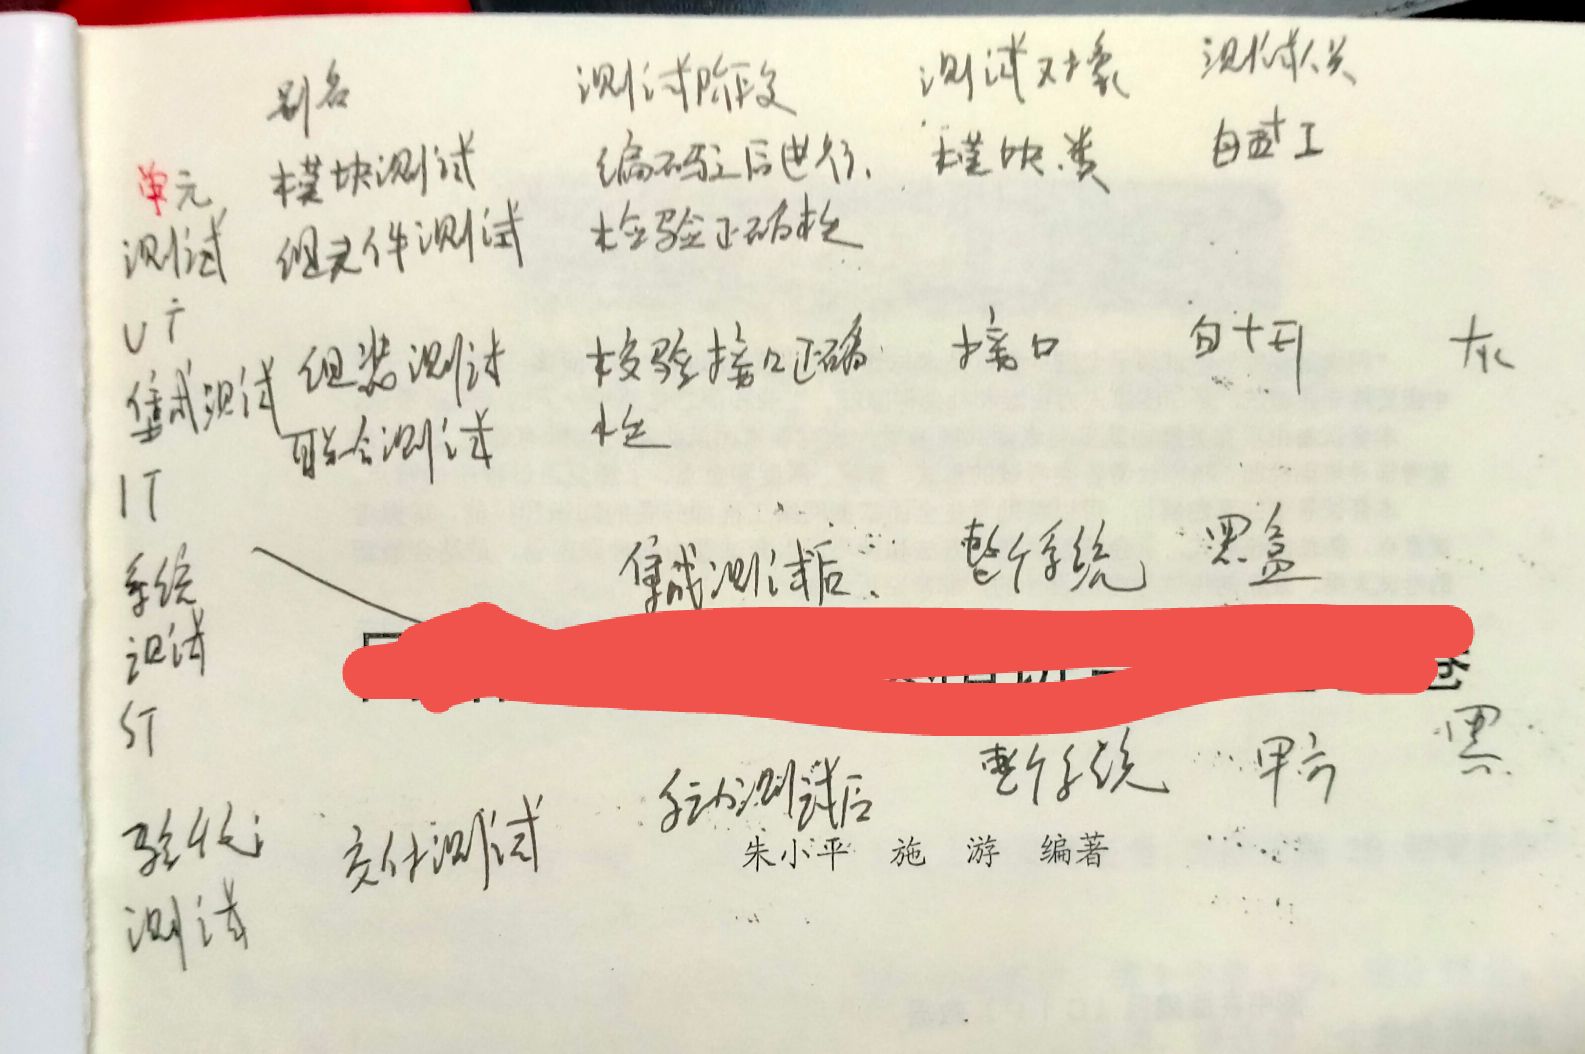 别名 测试阶段 测试对象 测试人员
单元 模块测试 编码之后进行、 模块类 白盒
测试 组件测试 检验正确性
UT
集成测试 组装测试 校验接口正确 接口 白 灰
联合测试 性
IT
集成测试后、 整个系统 黑盒
系统
测试
ST
整个系统 甲方 黑
系统测试后
验收 交付测试
朱小平 施 游 编著
测试